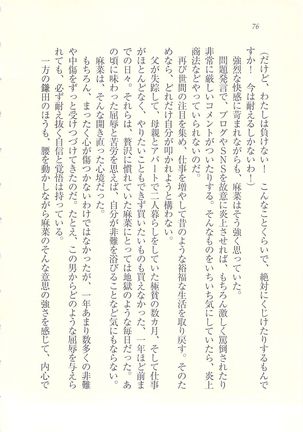 76
(だけど、わたしは負けない! こんなことくらいで、絶対にくじけたりするもんで
すか! 今は耐えるしかないわ……)
強烈な快感に苛まれながらも、麻菜はそう強く思っていた。
問題発言で、ブログやSNSを故意に炎上させれば、もちろん激しく罵倒されたり
非常に厳しいコメントがついたりする。そんなものをいちいち気にしていたら、炎上
商法などやっていられないのだ。
再び世間の注目を集め、仕事を増やして昔のような裕福な生活を取り戻す。そのた
めなら、どれだけ自分が叩かれようと構わない。
父が失踪して、母親とアパートで二人暮らしをしていた極貧の数カ月、そして仕事
がほとんどなく、やりたいこともできず買いたいものも買えなかった、一年ほど前ま
での日々。それらは、贅沢に慣れていた麻菜にとっては地獄のような毎日だった。あ
の頃に味わった屈辱と苦労を思えば、自分が非難を浴びることなど気にもならない。
麻菜は、そんな開き直った心境だった。
もちろん、まったく心が傷つかないわけではなかったが、一年あまり数多くの非難
や中傷をずっと受けつづけてきたのだ。たとえ、この男からどのような屈辱を与えら
れても、必ず耐え抜く自信と覚悟は持っている。
一方の鎌田のほうも、腰を動かしながら麻菜のそんな意思の強さを感じて、内心で